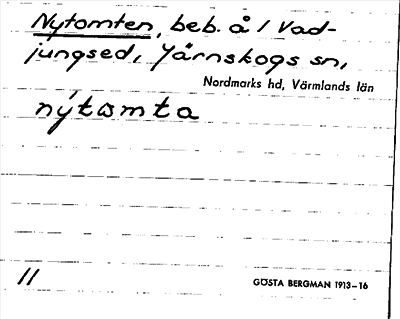 Nytomten, beb. å 1 Vad-
jungsed, Järnskogs sn,
Nordmarks hd, Värmlands län
nýtωmta
11
GÖSTA BERGMAN 1913–16